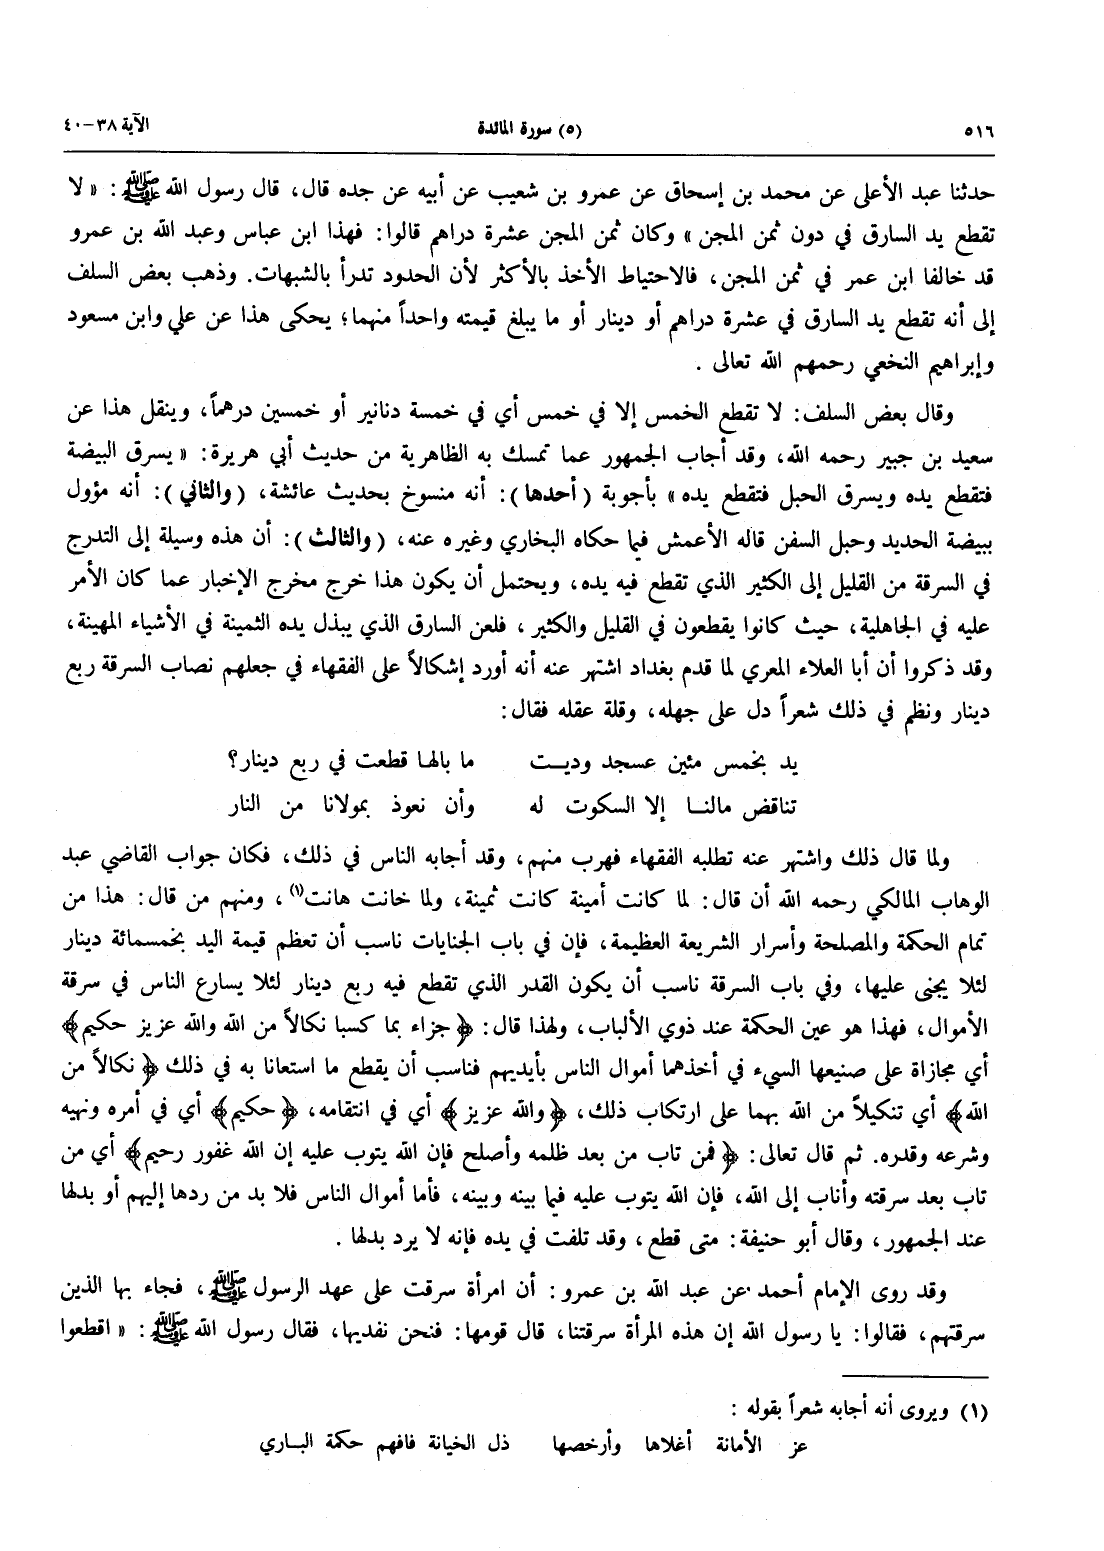 ٥١٦ (٥) سورة المائدة الآية ٣٨–٤٠
حدثنا عبد الأعلى عن محمد بن إسحاق عن عمرو بن شعيب عن أبيه عن جده قال، قال رسول الله ﷺ: « لا
تقطع يد السارق في دون ثمن المجن » وكان ثمن المجن عشرة دراهم قالوا: فهذا ابن عباس وعبد الله بن عمرو
قد خالفا ابن عمر في ثمن المجن، فالاحتياط الأخذ بالأكثر لأن الحدود تدرأ بالشبهات. وذهب بعض السلف
إلى أنه تقطع يد السارق في عشرة دراهم أو دينار أو ما يبلغ قيمته واحداً منهما؛ يحكى هذا عن علي وابن مسعود
وإبراهيم النخعي رحمهم الله تعالى .
وقال بعض السلف: لا تقطع الخمس إلا في خمس أي في خمسة دنانير أو خمسين درهماً، وينقل هذا عن
سعيد بن جبير رحمه الله، وقد أجاب الجمهور عما تمسك به الظاهرية من حديث أبي هريرة: « يسرق البيضة
فتقطع يده ويسرق الحبل فتقطع يده » بأجوبة (أحدها): أنه منسوخ بحديث عائشة، (والثاني): أنه مؤول
ببيضة الحديد وحبل السفن قاله الأعمش فيما حكاه البخاري وغيره عنه، (والثالث): أن هذه وسيلة إلى التدرج
في السرقة من القليل إلى الكثير الذي تقطع فيه يده، ويحتمل أن يكون هذا خرج مخرج الإخبار عما كان الأمر
عليه في الجاهلية، حيث كانوا يقطعون في القليل والكثير، فلعن السارق الذي يبذل يده الثمينة في الأشياء المهينة،
وقد ذكروا أن أبا العلاء المعري لما قدم بغداد اشتهر عنه أنه أورد إشكالاً على الفقهاء في جعلهم نصاب السرقة ربع
دينار ونظم في ذلك شعراً دل على جهله، وقلة عقله فقال:
يد بخمس مئين عسجد وديـت ما بالها قطعت في ربع دينار؟
تناقض مالنـا إلا السكوت له وأن نعوذ بمولانا من النار
ولما قال ذلك واشتهر عنه تطلبه الفقهاء فهرب منهم، وقد أجابه الناس في ذلك، فكان جواب القاضي عبد
الوهاب المالكي رحمه الله أن قال: لما كانت أمينة كانت ثمينة، ولما خانت هانت(١)، ومنهم من قال: هذا من
تمام الحكمة والمصلحة وأسرار الشريعة العظيمة، فإن في باب الجنايات ناسب أن تعظم قيمة اليد بخمسمائة دينار
لئلا يجنى عليها، وفي باب السرقة ناسب أن يكون القدر الذي تقطع فيه ربع دينار لئلا يسارع الناس في سرقة
الأموال، فهذا هو عين الحكمة عند ذوي الألباب، ولهذا قال: ﴿جزاء بما كسبا نكالاً من الله والله عزيز حكيم﴾
أي مجازاة على صنيعها السيء في أخذهما أموال الناس بأيديهم فناسب أن يقطع ما استعانا به في ذلك ﴿نكالاً من
الله﴾ أي تنكيلاً من الله بهما على ارتكاب ذلك، ﴿والله عزيز﴾ أي في انتقامه، ﴿حكيم﴾ أي في أمره ونهيه
وشرعه وقدره. ثم قال تعالى: ﴿فمن تاب من بعد ظلمه وأصلح فإن الله يتوب عليه إن الله غفور رحيم﴾ أي من
تاب بعد سرقته وأناب إلى الله، فإن الله يتوب عليه فيما بينه وبينه، فأما أموال الناس فلا بد من ردها إليهم أو بدلها
عند الجمهور، وقال أبو حنيفة: متى قطع، وقد تلفت في يده فإنه لا يرد بدلها .
وقد روى الإمام أحمد عن عبد الله بن عمرو: أن امرأة سرقت على عهد الرسول ﷺ، فجاء بها الذين
سرقتهم، فقالوا: يا رسول الله إن هذه المرأة سرقتنا، قال قومها: فنحن نفديها، فقال رسول الله ﷺ: « اقطعوا
(١) ويروى أنه أجابه شعراً بقوله :
عز الأمانة أغلاها وأرخصها ذل الخيانة فافهم حكمة البـاري